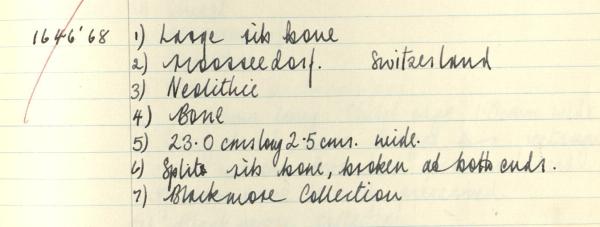 1646'68 1) Large rib bone
2) Moosseedorf. Switzerland
3) Neolithic
4) Bone
5) 23.0 cms long 2.5 cms. wide.
6) Split rib bone, broken at both ends.
7) Blackmore Collection